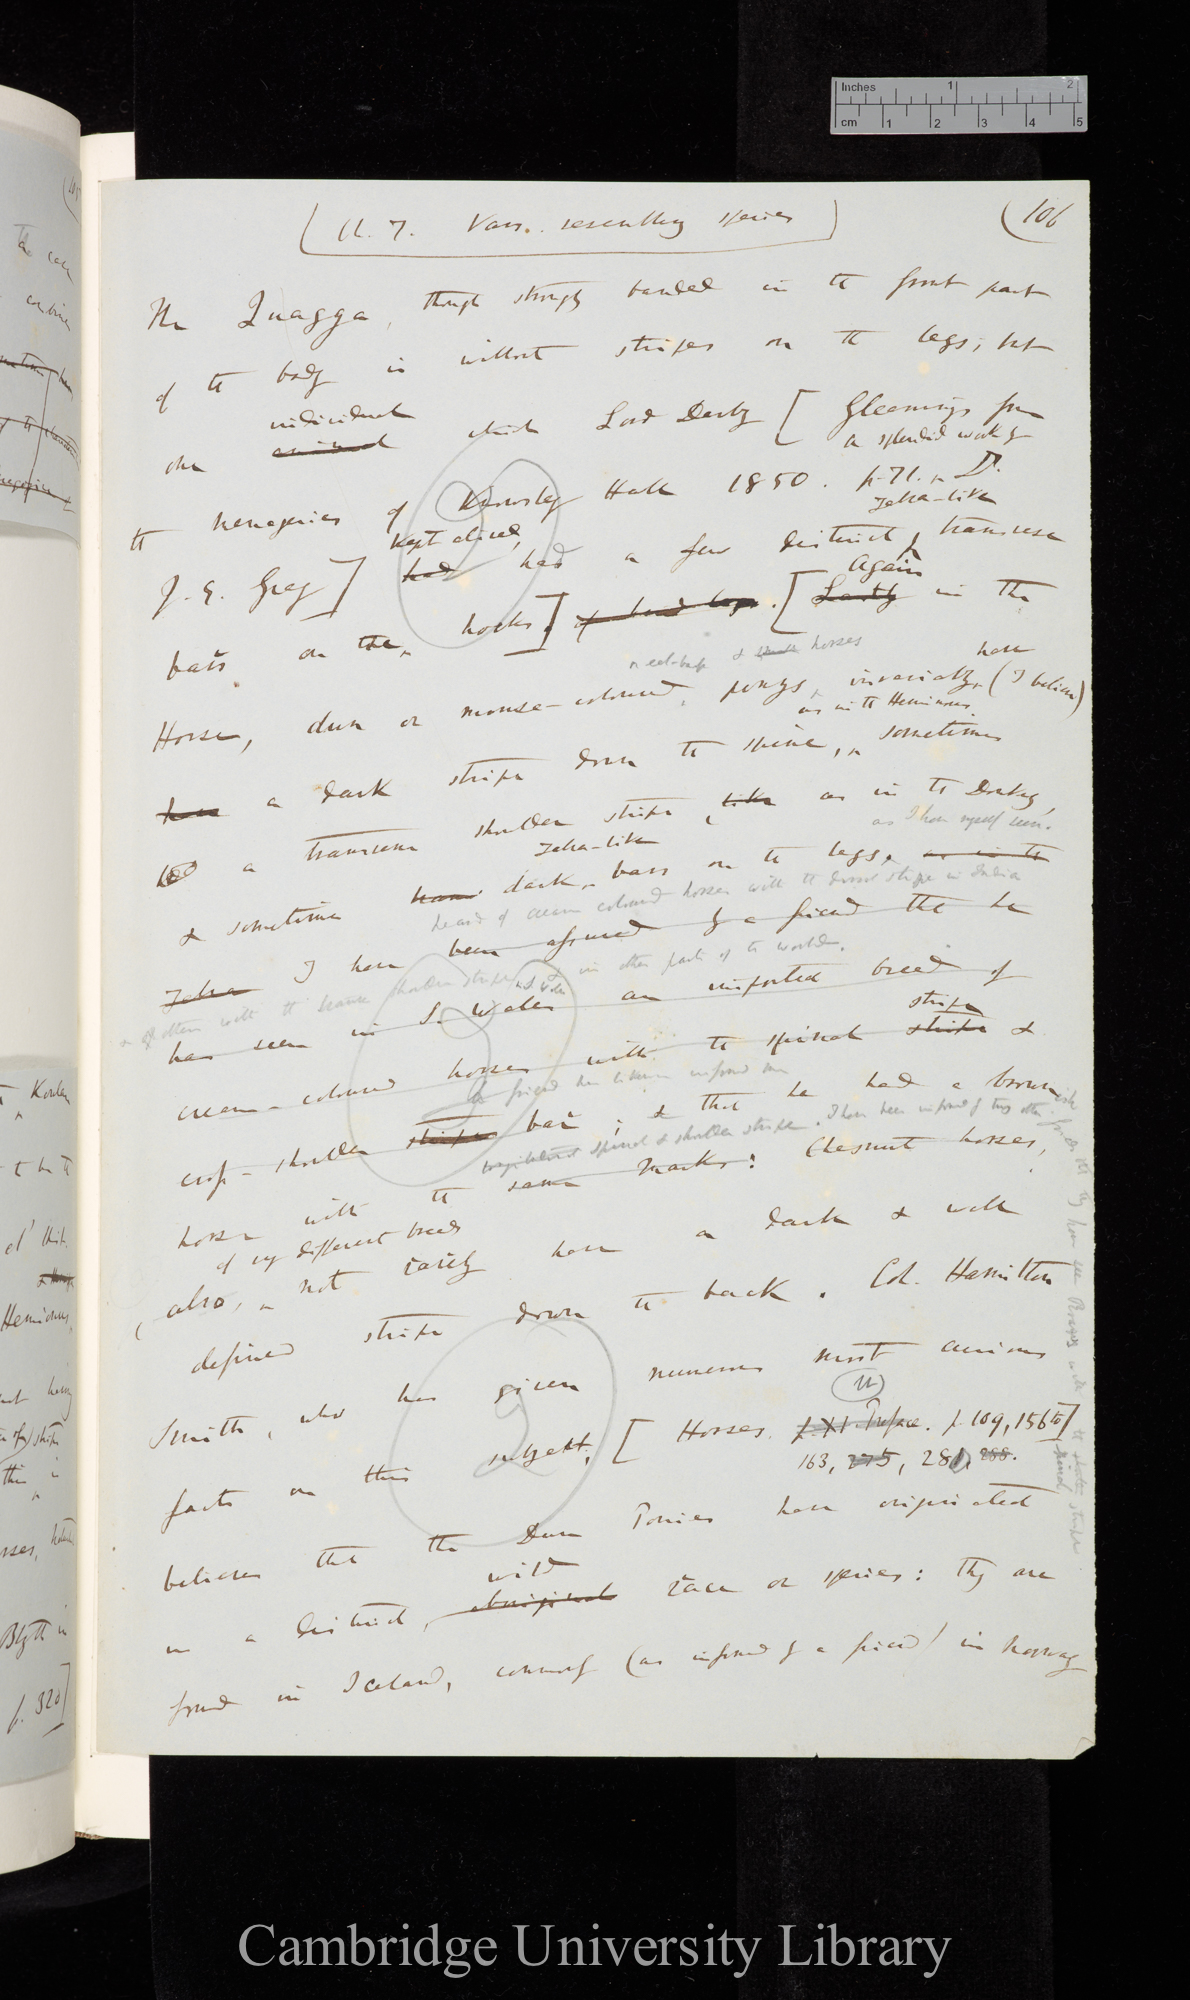 Inches 1 2
cm 1 2 3 4 5
Ch. 7. Vars. resembling species
(106
The Quagga, though strongly banded in the front part
of the body is without stripes on the legs; but
individual
one animal which Lord Derby [Gleanings from
a splendid work by
the menageries of Knowsley Hall 1850. p. 71. Dr.
Zebra-like
kept alived,
J. E. Gray] had had a few distinct transverse
Again
bars on the hocks.] of hind legs. [Lastly in the
& horses
have
Horse, dun or mouse-coloured ponys, invariably (I believe)
as in the Hemionus
have a dark stripe down the spine, sometimes
a transverse shoulder stripe, like as in the Donkey,
Zebra-like
as I have myself seen.
& sometimes have dark bars on the legs, as in the
heard of cream coloured horses with the dorsal stripe in India
Zebra I have been assured by a friend that he
& of others with the transverse shoulder stripe in other parts of the world.
has seen in S. Wales an imported breed of
stripe
cream-coloured horses with the spinal stripe &
a friend has likewise informed me
cross-shoulder stripes bar; & that he had a brown
spinal & shoulder stripe. I have been informed of two other
horse with the same marks: Chesnut horses,
of very different breeds
also, not rarely have a dark & well
defined stripe down the back. Col. Hamilton
Smith, who has given numerous most curious
facts on this subject, [Horses. p. XI. Preface. p. 109, 156 to
163, 275, 281, 288.]
believes that the Dun Ponies have originated
wild
in a distinct, aboriginal race or species: they are
found in Iceland, commonly (as informed by a friend) in Norway
Hemionus,
p. 320]
Cambridge University Library